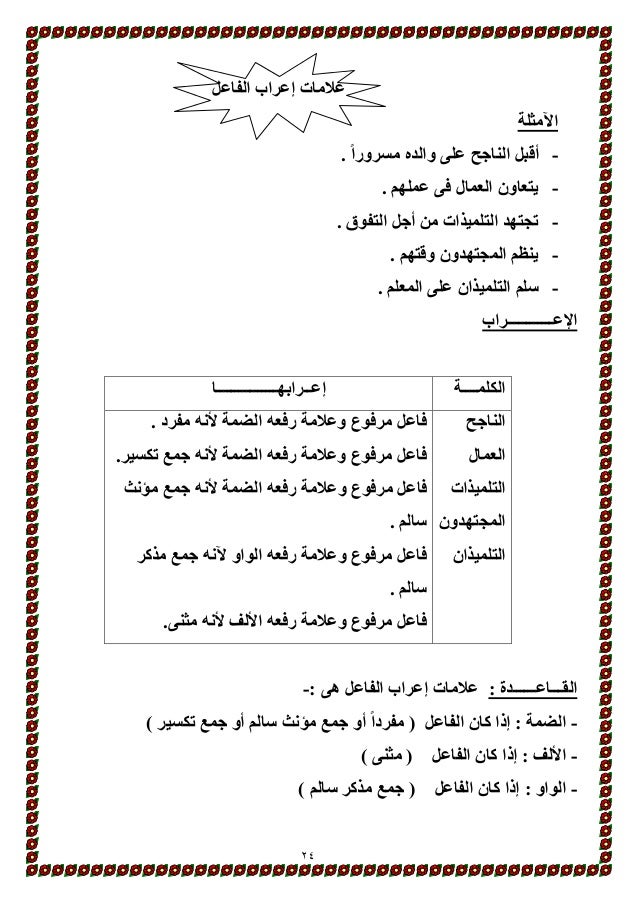 علامات إعراب الفاعل
الأمثلة
- أقبل الناجح على والده مسروراً .
- يتعاون العمال فى عملهم .
- تجتهد التلميذات من أجل التفوق .
- ينظم المجتهدون وقتهم .
- سلم التلميذان على المعلم .
الإعـــــــــــراب
الكلمــــة إعــرابهـــــــــــــــا
الناجح فاعل مرفوع وعلامة رفعه الضمة لأنه مفرد .
العمال فاعل مرفوع وعلامة رفعه الضمة لأنه جمع تكسير.
التلميذات فاعل مرفوع وعلامة رفعه الضمة لأنه جمع مؤنث
المجتهدون سالم .
التلميذان فاعل مرفوع وعلامة رفعه الواو لأنه جمع مذكر
سالم .
فاعل مرفوع وعلامة رفعه الألف لأنه مثنى.
القـــاعــــــدة : علامات إعراب الفاعل هى :-
- الضمة : إذا كان الفاعل ( مفرداً أو جمع مؤنث سالم أو جمع تكسير )
- الألف : إذا كان الفاعل ( مثنى )
- الواو : إذا كان الفاعل ( جمع مذكر سالم )
٢٤